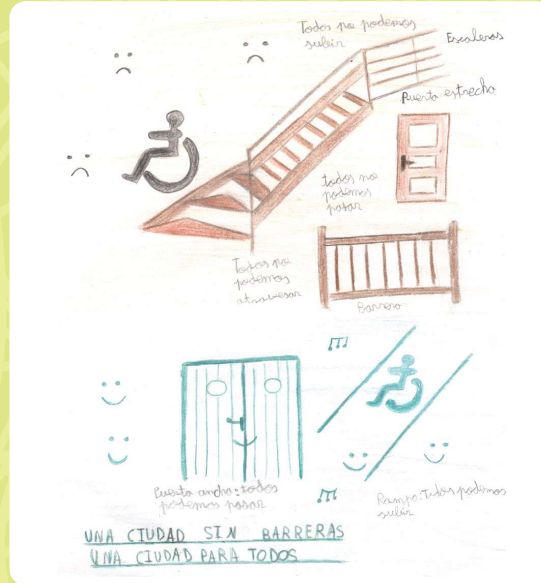 Todos no podemos
subir
Escaleras
Puerta estrecha
todos no
podemos
pasar
Todos no
podemos
atravesar
Barrera
Puerta ancha: todos
podemos pasar
Rampa: Todos podemos
subir
UNA CIUDAD SIN BARRERAS
UNA CIUDAD PARA TODOS